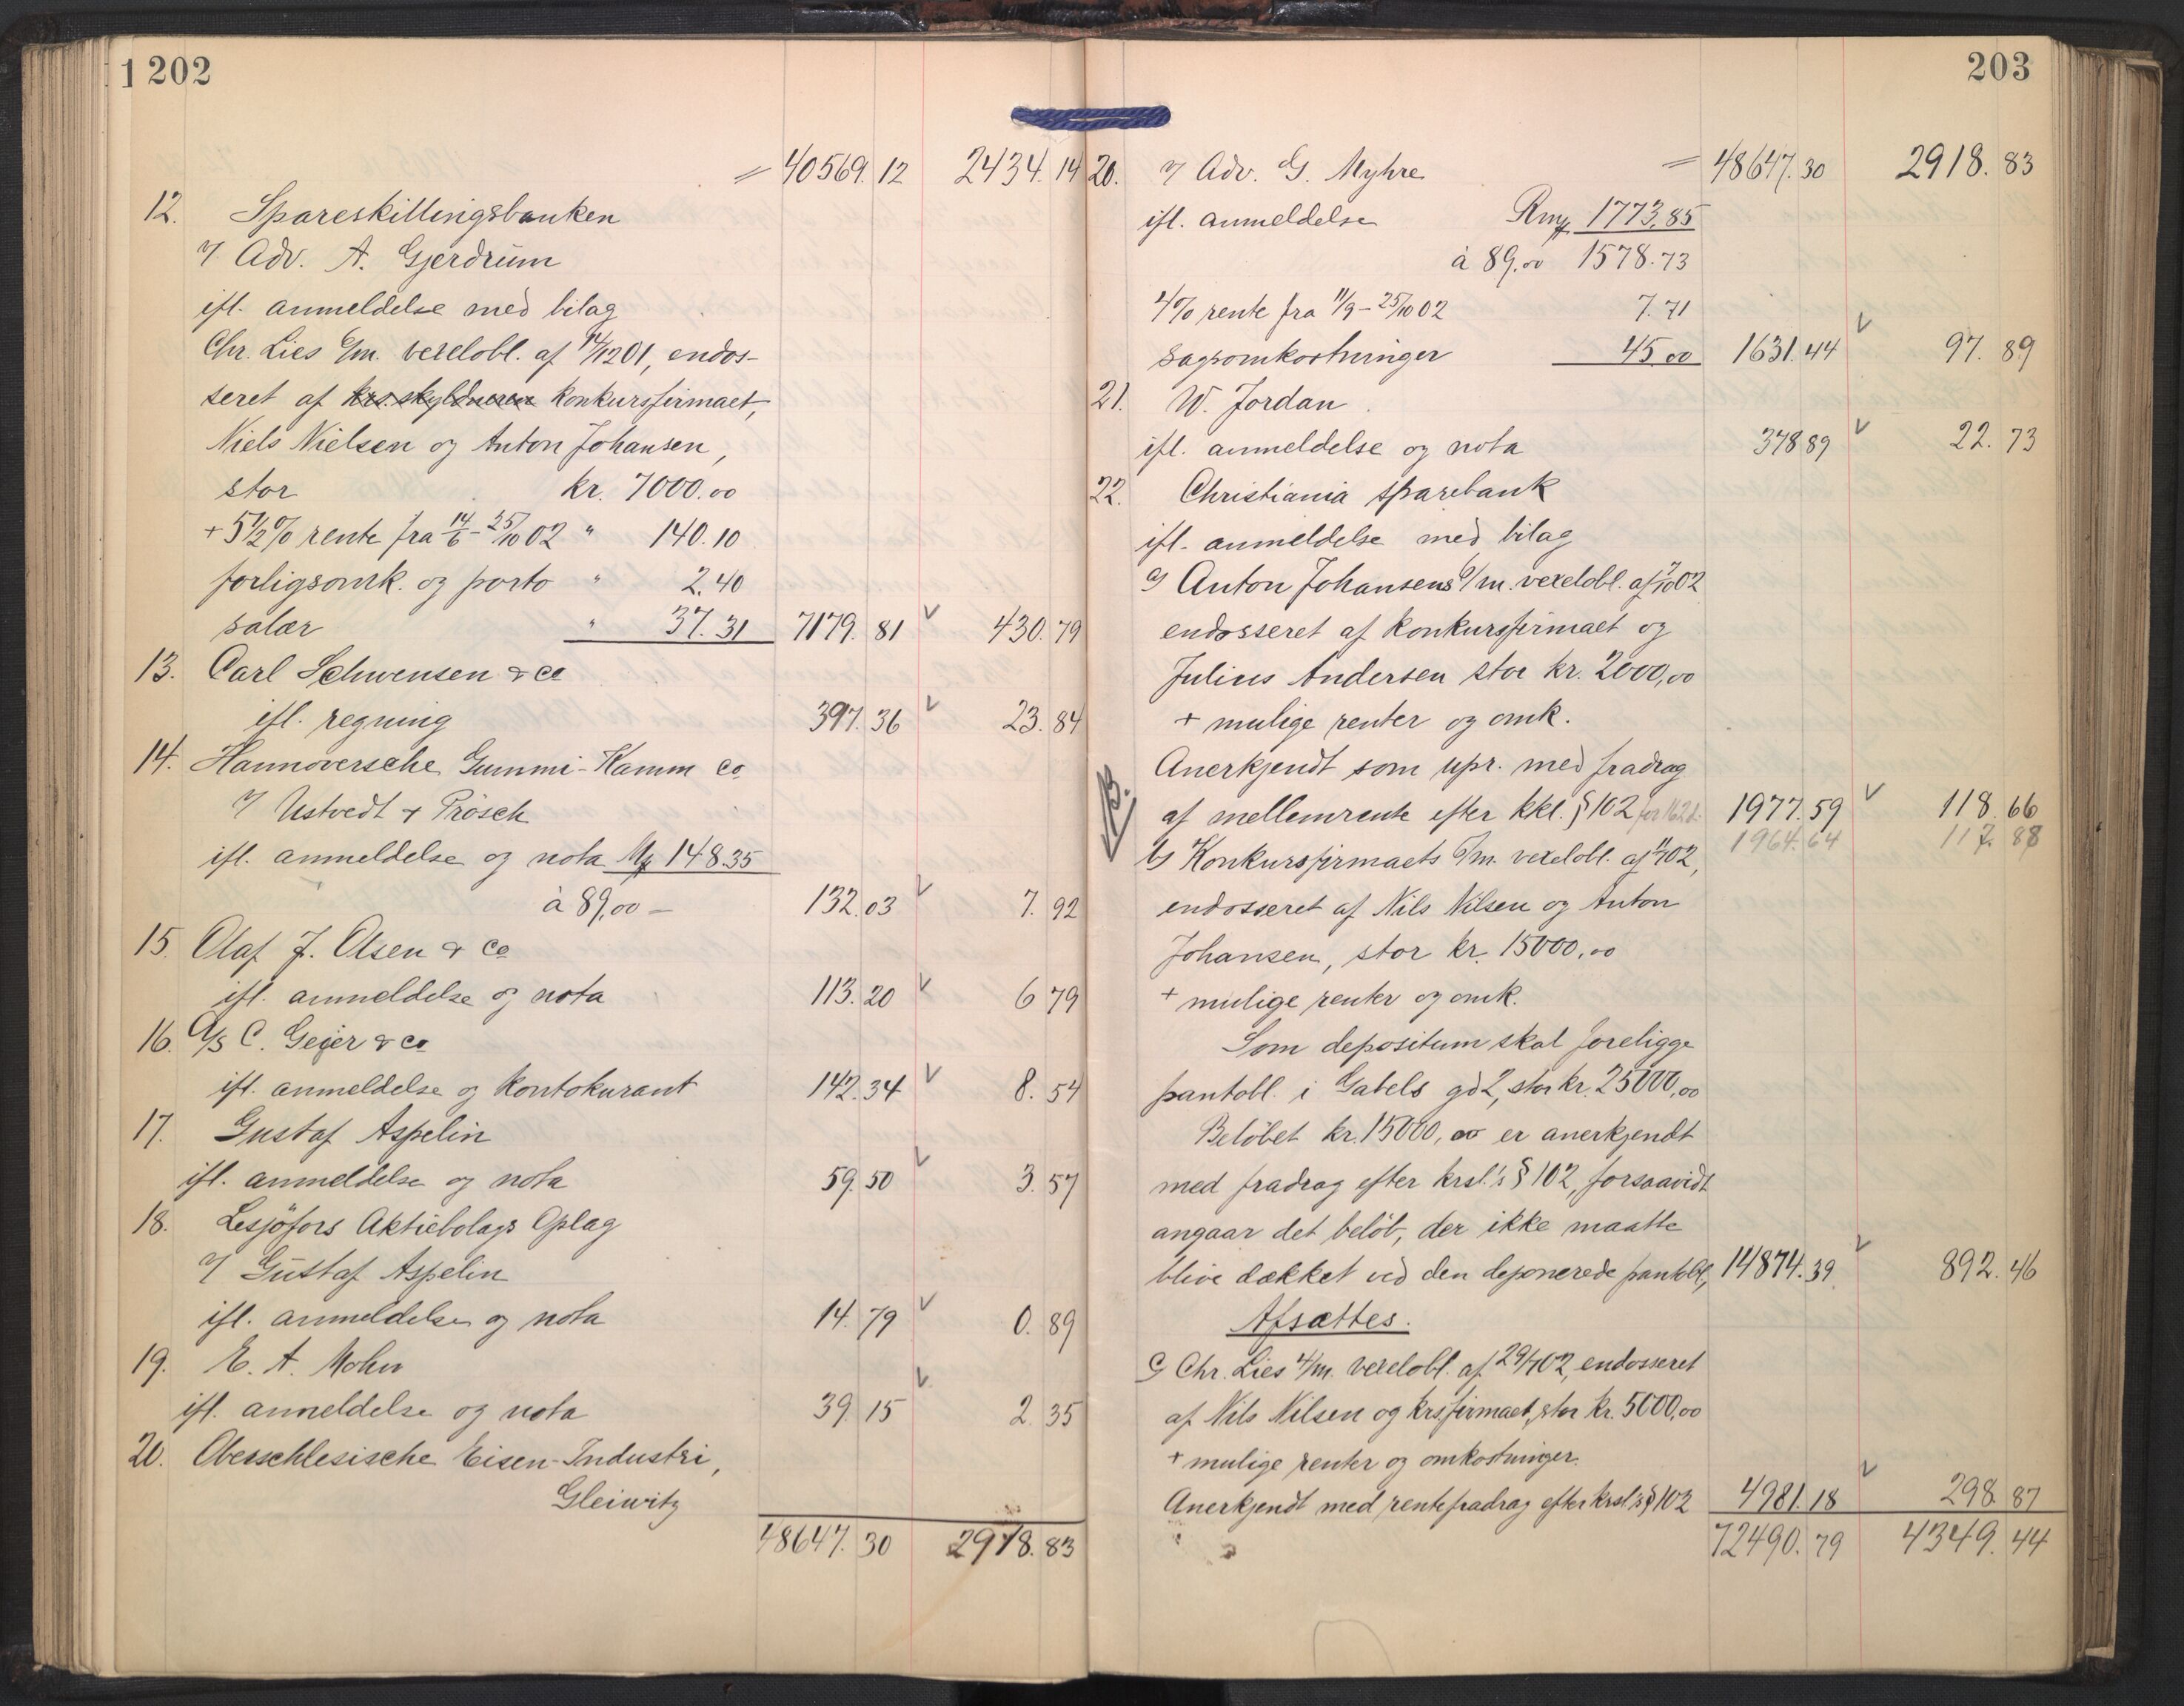 1 202
= 40569.12 2434.14
12. Spareskillingsbanken
v/ Adv. A. Gjerdrum
ifl. anmeldelse med bilag
Chr. Lies 6/m. vexelobl. af 14/12 01, endos-
seret af krs.skyldneren konkursfirmaet,
Niels Nielsen og Anton Johansen,
stor kr. 7000.00
+ 5½% rente fra 14/6 - 25/10 02 " 140.10
forligsomk. og porto " 2.40
salær " 37.31 7179.81 430.79
13. Carl Schwensen & Co
ifl. regning 397.36 23.84
14. Hannoversche Gummi-Kamm Co
v/ Ustvedt & Prösch
ifl. anmeldelse og nota Mk 148.35
à 89,00 – 132.03 7.92
15. Olaf J. Olsen & Co
ifl. anmeldelse og nota 113.20 6 79
16. A/S C. Geijer & Co
ifl. anmeldelse og kontokurant 142.34 8.54
17. Gustaf Aspelin
ifl. anmeldelse og nota 59.50 3.57
18. Lesjöfors Aktiebolags Oplag
v/ Gustaf Aspelin
ifl. anmeldelse og nota 14.79 0.89
19. E. A. Mohn
ifl. anmeldelse og nota 39.15 2.35
20. Oberschlesische Eisen-Industri,
Gleiwitz
48647.30 2918.83
203
20. v/ Adv. G. Myhre = 48647.30 2918.83
ifl. anmeldelse Rmk 1773,85
à 89,00 1578.73
4% rente fra 11/9 - 25/10 02 7.71
sagsomkostninger 45.00 1631.44 97.89
21. W. Jordan
ifl. anmeldelse og nota 378 89 22.73
22. Christiania sparebank
ifl. anmeldelse med bilag
a) Anton Johansens 6/m. vexelobl. af 7/10 02
endosseret af konkursfirmaet og
Julius Andersen stor kr. 2000,00
+ mulige renter og omk.
Anerkjendt som upr. med fradrag
af mellemrente efter kkl. § 102 for 162 d. 1977.59 118.66
1964.64 117.88
b) Konkursfirmaets 6/m. vexelobl. af 11/7 02,
endosseret af Nils Nilsen og Anton
Johansen, stor kr. 15000.00
+ mulige renter og omk.
Som depositum skal foreligge
pantobl. i Gabels gd 2, stor kr. 25000,00
Beløbet kr. 15000,00 er anerkjendt
med fradrag efter krsl.'s § 102, forsaavidt
angaar det beløb, der ikke maatte
blive dækket ved den deponerede pantobl, 14874.39 892.46
Afsættes.
c) Chr. Lies 4/m. vexelobl. af 29/7 02, endosseret
af Nils Nilsen og krsfirmaet, stor kr. 5000,00
+ mulige renter og omkostninger.
Anerkjendt med rentefradrag efter krsl.'s § 102 4981.18 298.87
72490.79 4349.44